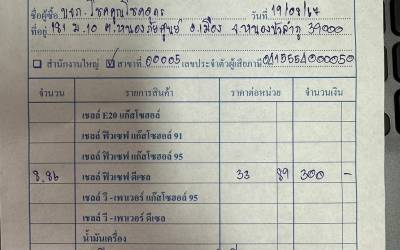 ชื่อผู้ซื้อ บจก. โชคคูณโชคถาวร วันที่ 19/08/67
ที่อยู่ 181 ม.10 ต.หนองภัยศูนย์ อ.เมือง จ.หนองบัวลำภู 39000
สำนักงานใหญ่ ✓ สาขาที่ 00005 เลขประจำตัวผู้เสียภาษี
จำนวน รายการสินค้า ราคาต่อหน่วย จำนวนเงิน
เชลล์ E20 แก๊สโซฮอล์
เชลล์ ฟิวเซฟ แก๊สโซฮอล์ 91
เชลล์ ฟิวเซฟ แก๊สโซฮอล์ 95
8.86 เชลล์ ฟิวเซฟ ดีเซล 33 89 300 —
เชลล์ วี -เพาเวอร์ แก๊สโซฮอล์ 95
เชลล์ วี -เพาเวอร์ ดีเซล
น้ำมันเครื่อง